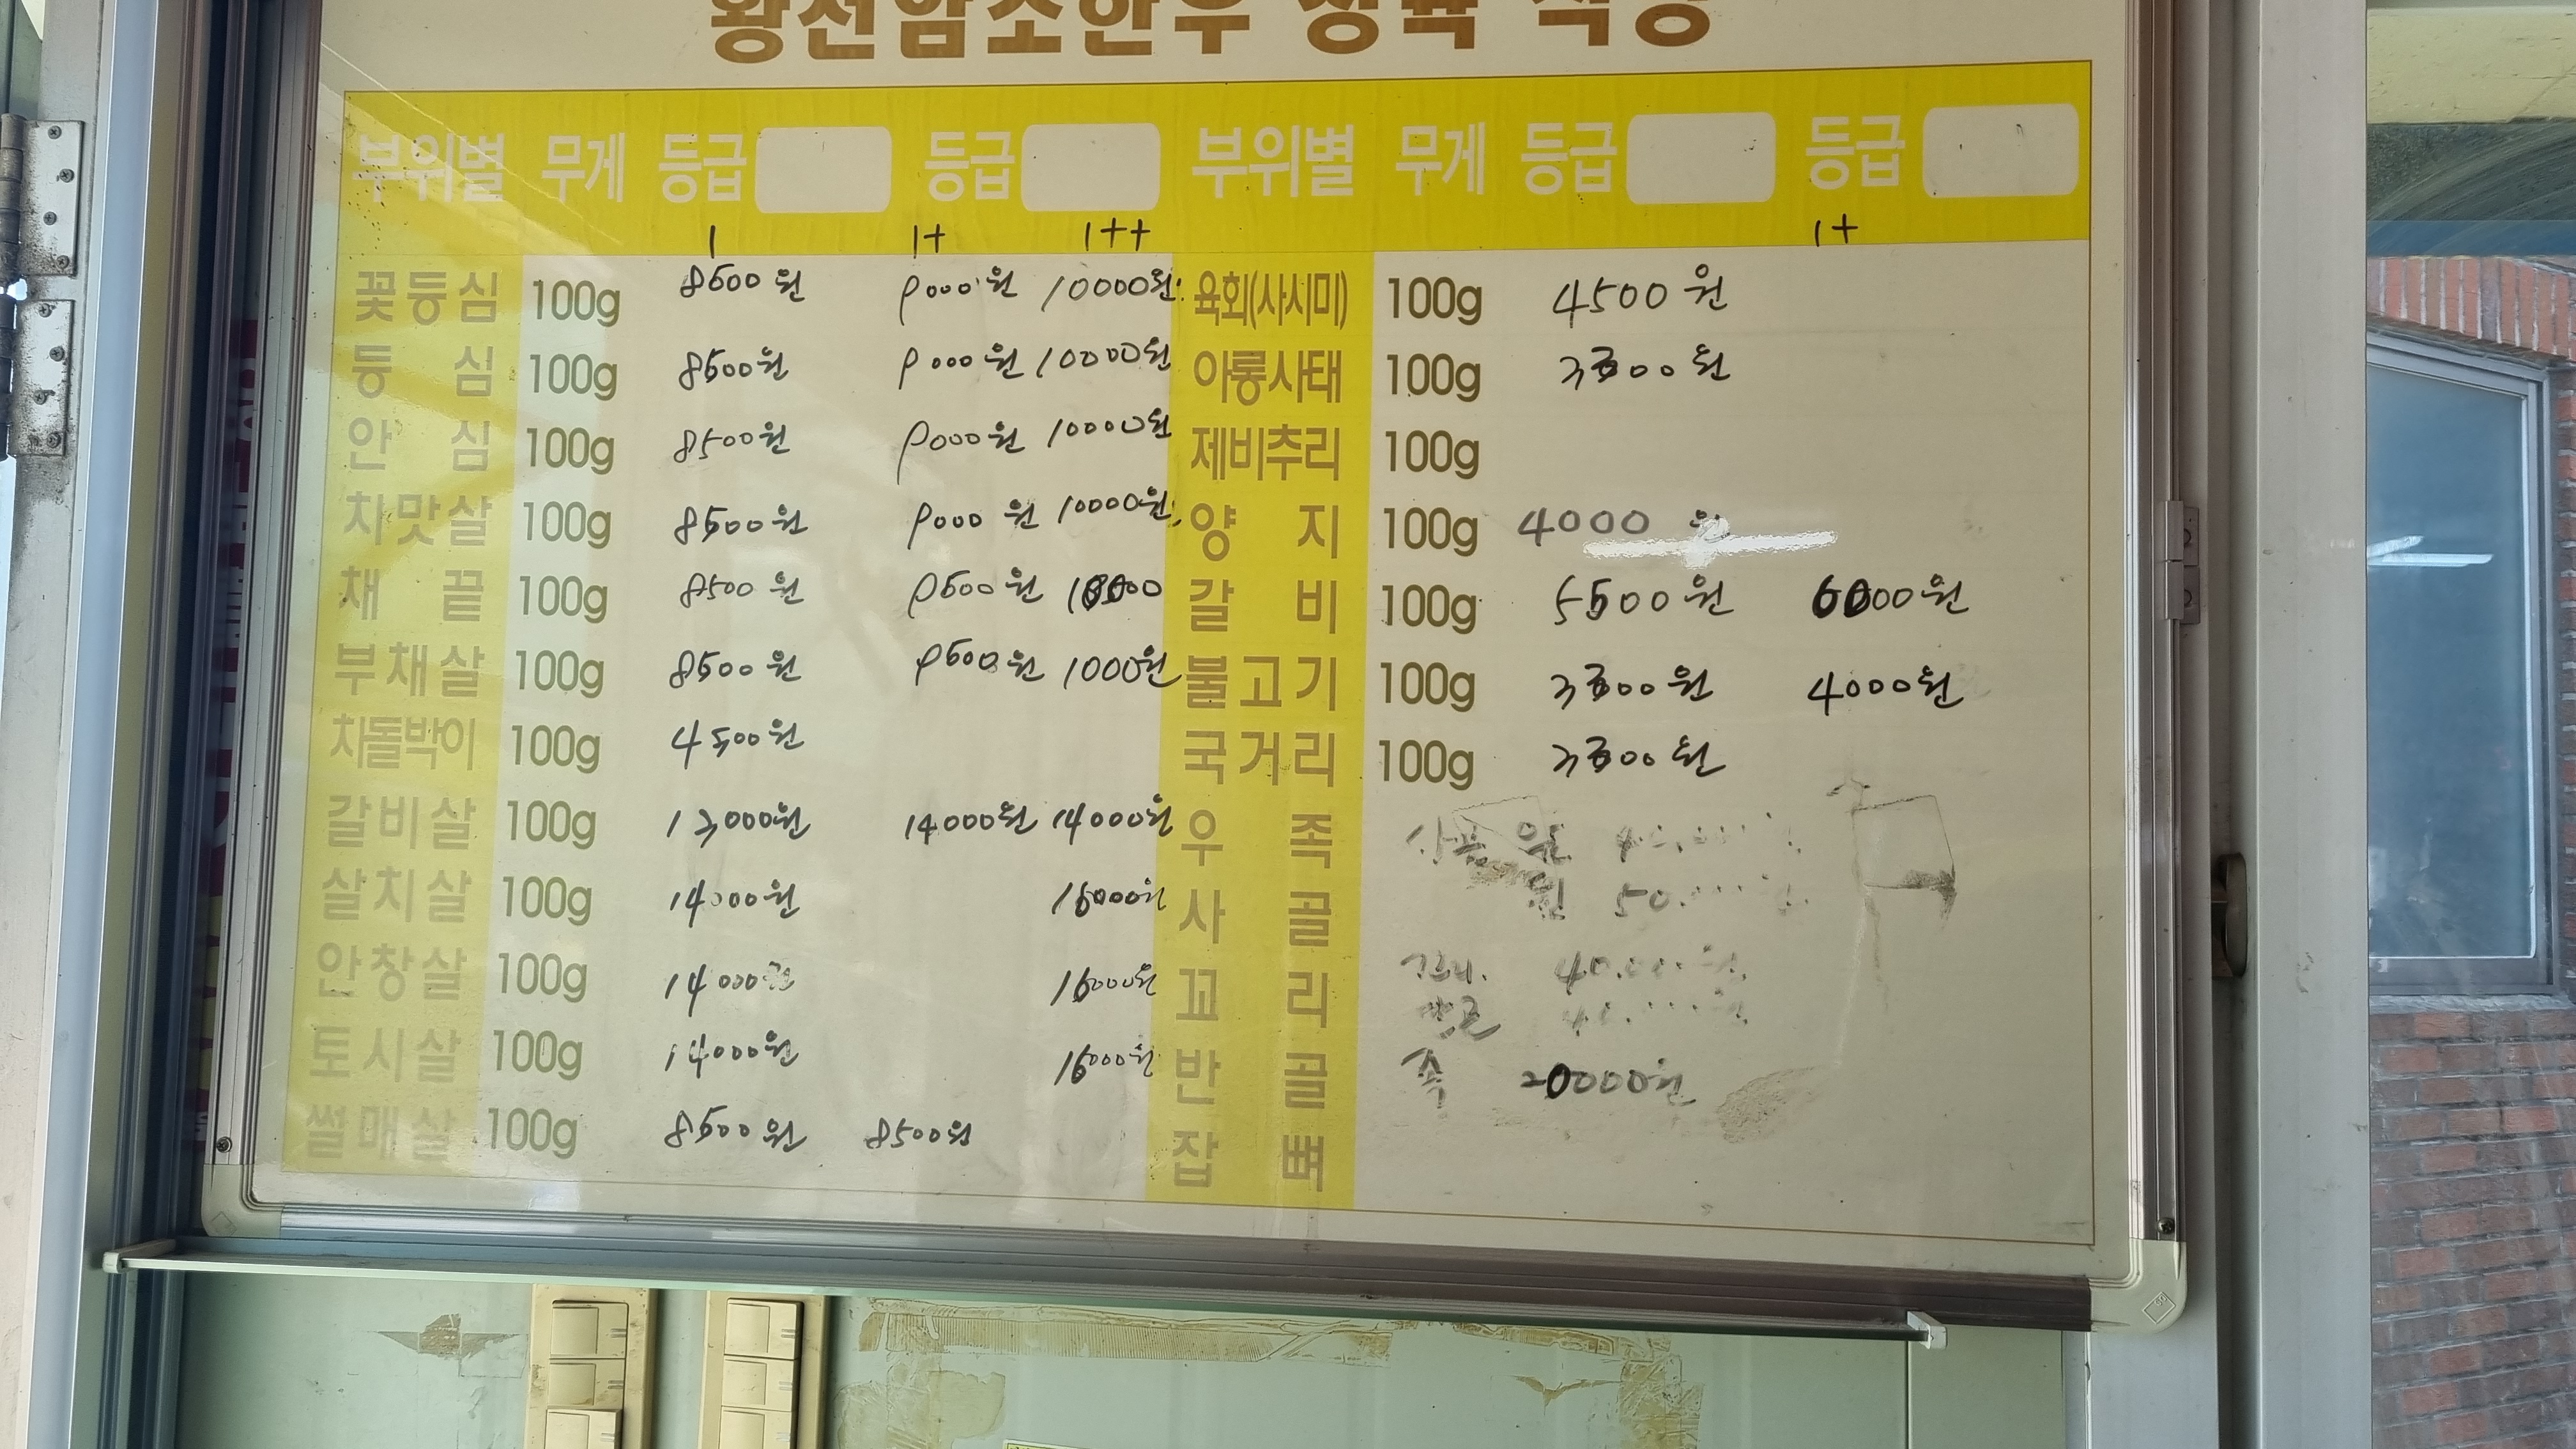 황천암소한우 정육 식당
부위별 무게 등급 등급 부위별 무게 등급 등급
1 1+ 1++ 1+
꽃등심 100g 8500원 9000원 10000원 육회(사시미) 100g 4500원
등심 100g 8500원 9000원 10000원 아롱사태 100g 3500원
안심 100g 8500원 9000원 10000원 제비추리 100g
치맛살 100g 8500원 9000원 10000원 양지 100g 4000원
채끝 100g 8500원 9500원 갈비 100g 5500원 6000원
부채살 100g 8500원 9500원 1000원 불고기 100g 원 4000원
차돌박이 100g 4500원 국거리 100g 원
갈비살 100g 13000원 14000원 14000원 우족
살치살 100g 14000원 16000원 사골
안창살 100g 14000원 16000원 꼬리
토시살 100g 14000원 16000원 반골 족 20000원
썰매살 100g 8500원 8500원 잡뼈